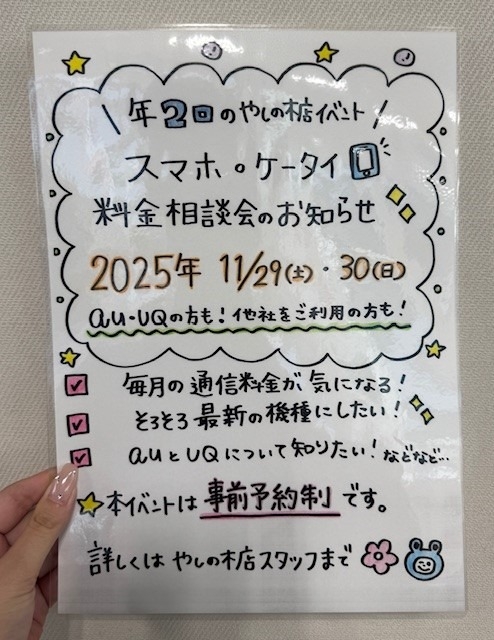 \ 年2回のやしの木店イベント /
スマホ・ケータイ
料金相談会のお知らせ
2025年 11/29(土)・30(日)
au・UQの方も！他社をご利用の方も！
毎月の通信料金が気になる！
そろそろ最新の機種にしたい！
auとUQについて知りたい！などなど…
本イベントは事前予約制です。
詳しくはやしの木店スタッフまで